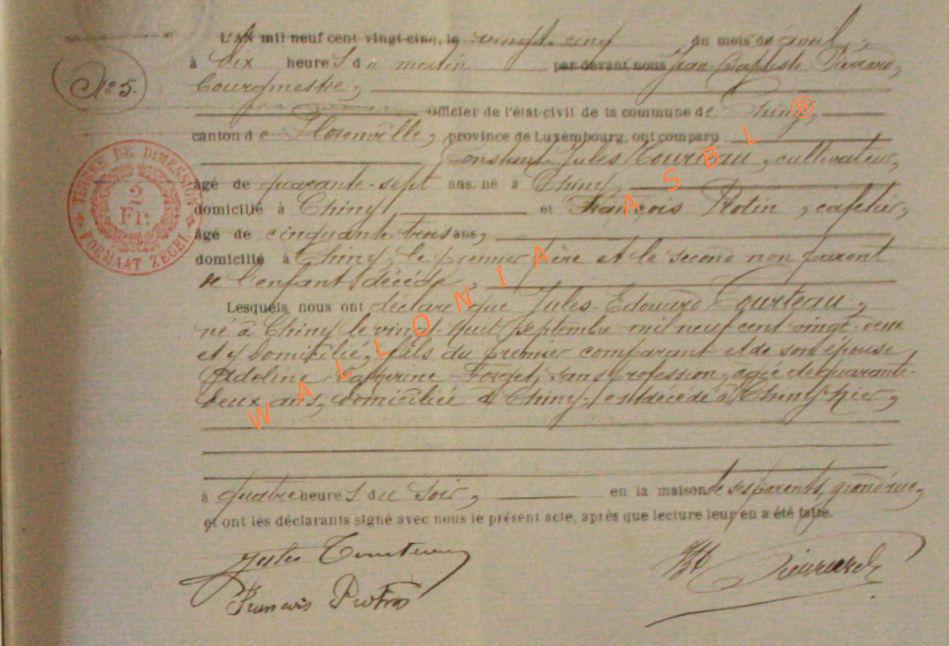 L'AN mil neuf cent vingt-cinq, le vingt-cinq du mois d'avril,
à dix heures du matin par-devant nous Jean Baptiste Pierrard,
N° 5.
bourgmestre,
Officier de l'état-civil de la commune de Chiny,
canton de Florenville, province de Luxembourg, ont comparu
Constant Jules Tourteau, cultivateur,
âgé de quarante-sept ans, né à Chiny,
domicilié à Chiny, et François Protin, cafetier,
âgé de cinquante-trois ans,
domicilié à Chiny, le premier père et le second non parent
de l'enfant décédé
Lesquels nous ont déclaré que Jules Edouard Tourteau,
né à Chiny le vingt-huit septembre mil neuf cent vingt-deux
et y domicilié, fils du premier comparant et de son épouse
Adeline Catherine Forget, sans profession, âgée de quarante-
deux ans, domiciliée à Chiny, est décédé à Chiny hier,
à quatre heures du soir, en la maison de ses parents, grand'rue,
et ont les déclarants signé avec nous le présent acte, après que lecture leur en a été faite.
Jules Tourteau
François Protin
JB Pierrard
TIMBRE DE DIMENSION
2
Fr.
FORMAAT ZEGEL
WALLONIA ASBL ®